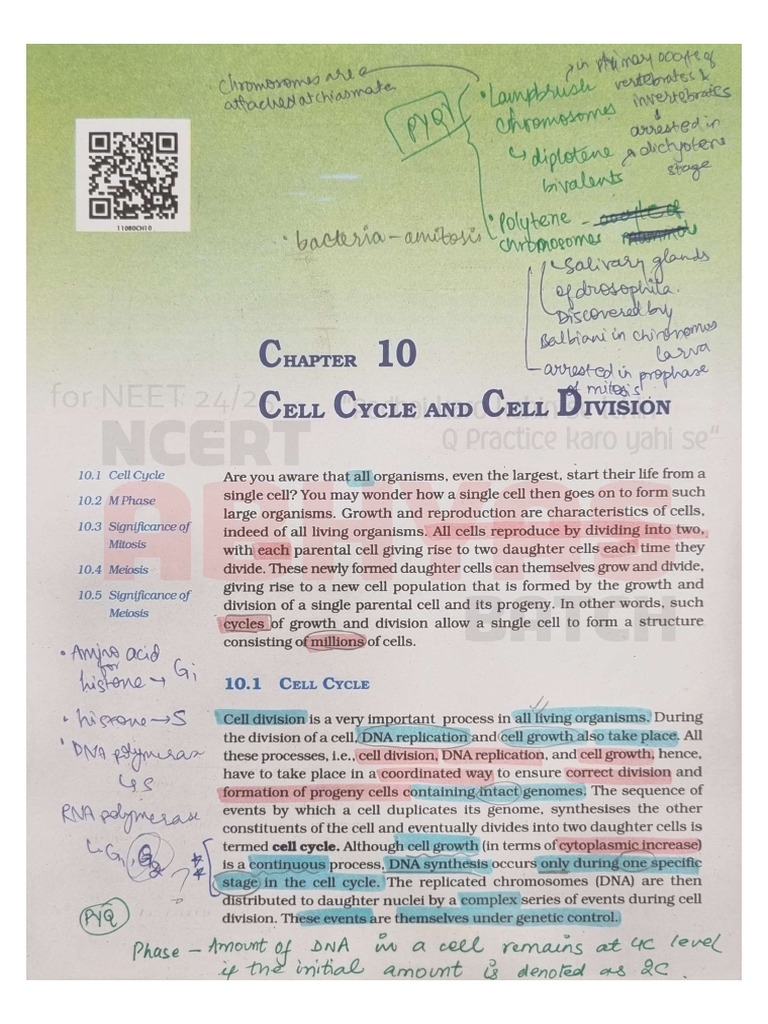 Chromosomes are
attached at chiasmata
PYQ
• Lampbrush
chromosomes
↳ diplotene
bivalents
in primary oocyte of
vertebrates &
invertebrates
arrested in
dictyotene
stage
11080CH10
• bacteria – amitosis
• Polytene –
chromosomes
Salivary glands
of drosophila.
Discovered by
Balbiani in chironomus
larva
arrested in prophase
of mitosis
CHAPTER 10
for NEET 24/25
CELL CYCLE AND CELL DIVISION
NCERT
Q Practice karo yahi se"
10.1 Cell Cycle
10.2 M Phase
10.3 Significance of
Mitosis
10.4 Meiosis
10.5 Significance of
Meiosis
Are you aware that all organisms, even the largest, start their life from a
single cell? You may wonder how a single cell then goes on to form such
large organisms. Growth and reproduction are characteristics of cells,
indeed of all living organisms. All cells reproduce by dividing into two,
with each parental cell giving rise to two daughter cells each time they
divide. These newly formed daughter cells can themselves grow and divide,
giving rise to a new cell population that is formed by the growth and
division of a single parental cell and its progeny. In other words, such
cycles of growth and division allow a single cell to form a structure
consisting of millions of cells.
BATCH
• Amino acid
for
histone → G₁
• histone → S
• DNA polymerase
↳ S
RNA polymerase
↳ G₁, G₂
?
PYQ
10.1 CELL CYCLE
Cell division is a very important process in all living organisms. During
the division of a cell, DNA replication and cell growth also take place. All
these processes, i.e., cell division, DNA replication, and cell growth, hence,
have to take place in a coordinated way to ensure correct division and
formation of progeny cells containing intact genomes. The sequence of
events by which a cell duplicates its genome, synthesises the other
constituents of the cell and eventually divides into two daughter cells is
termed cell cycle. Although cell growth (in terms of cytoplasmic increase)
is a continuous process, DNA synthesis occurs only during one specific
stage in the cell cycle. The replicated chromosomes (DNA) are then
distributed to daughter nuclei by a complex series of events during cell
division. These events are themselves under genetic control.
Phase – Amount of DNA in a cell remains at 4C level
if the initial amount is denoted as 2C.